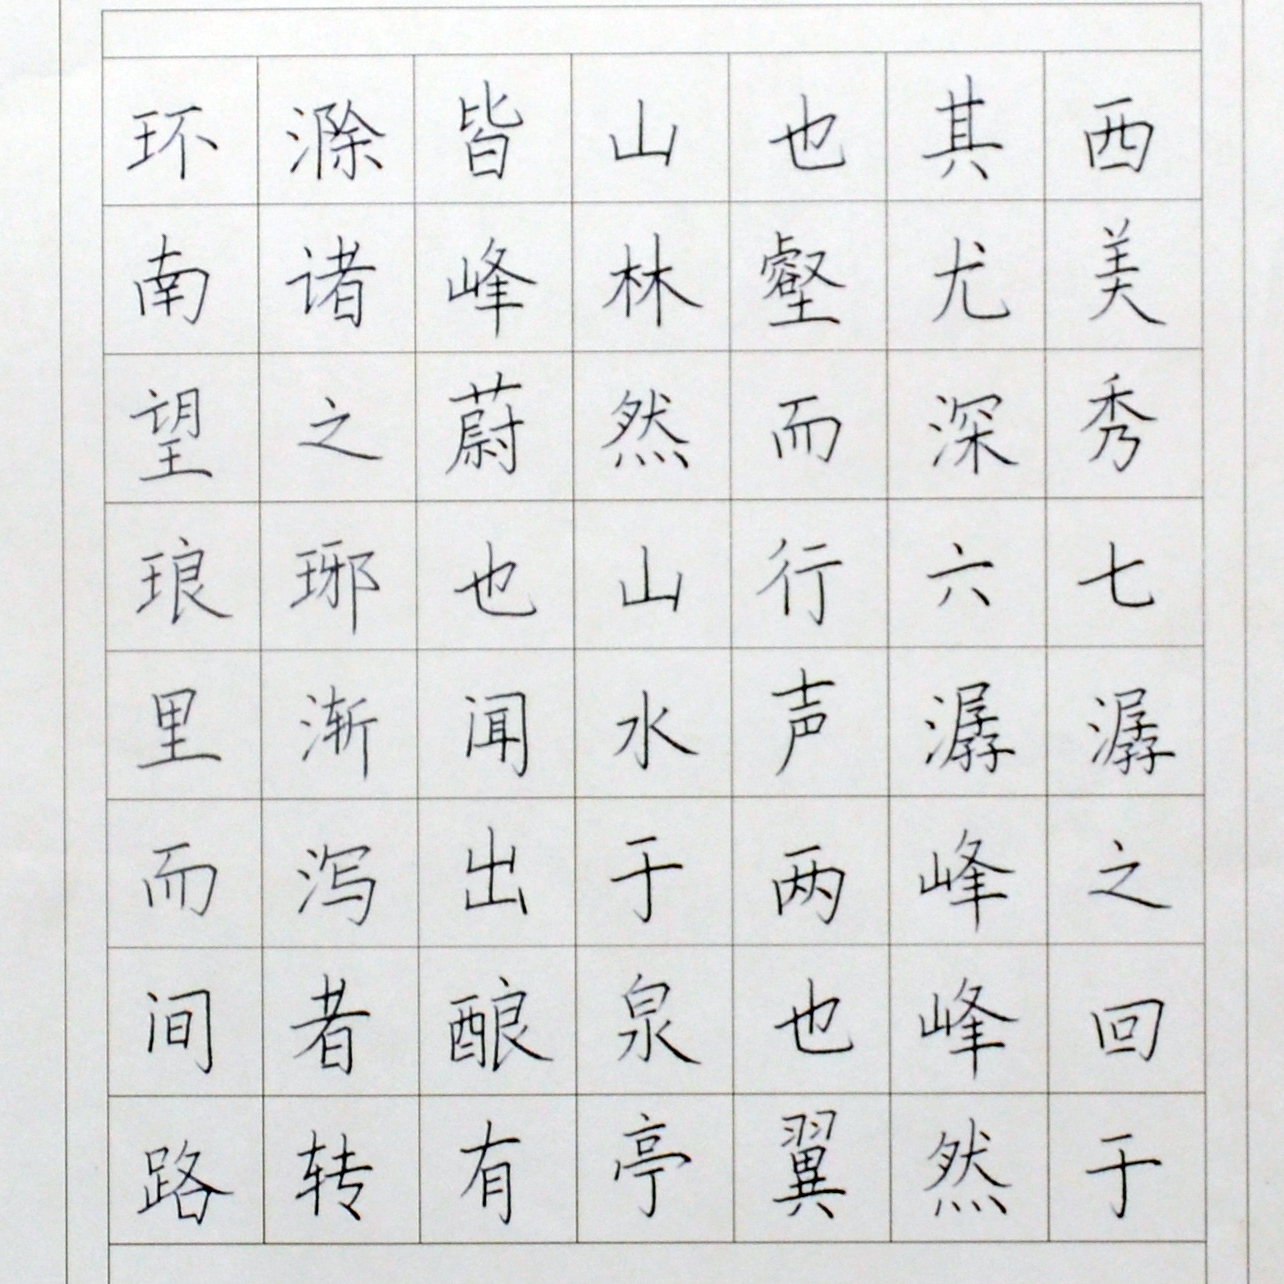 环滁皆山也其西
南诸峰林壑尤美
望之蔚然而深秀
琅琊也山行六七
里渐闻水声潺潺
而泻出于两峰之
间者酿泉也峰回
路转有亭翼然于